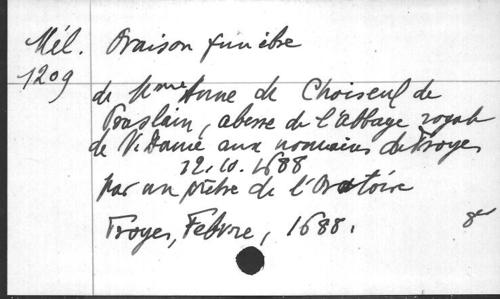 Mél. Oraison funèbre
1209
de Mme Anne de Choiseul de
Praslain, abesse de l'Abbaye royale
de N. Dame aux nonnains de Troyes
12.10.1688
par un prêtre de l'Oratoire
Troyes, Febvre, 1688.
8º